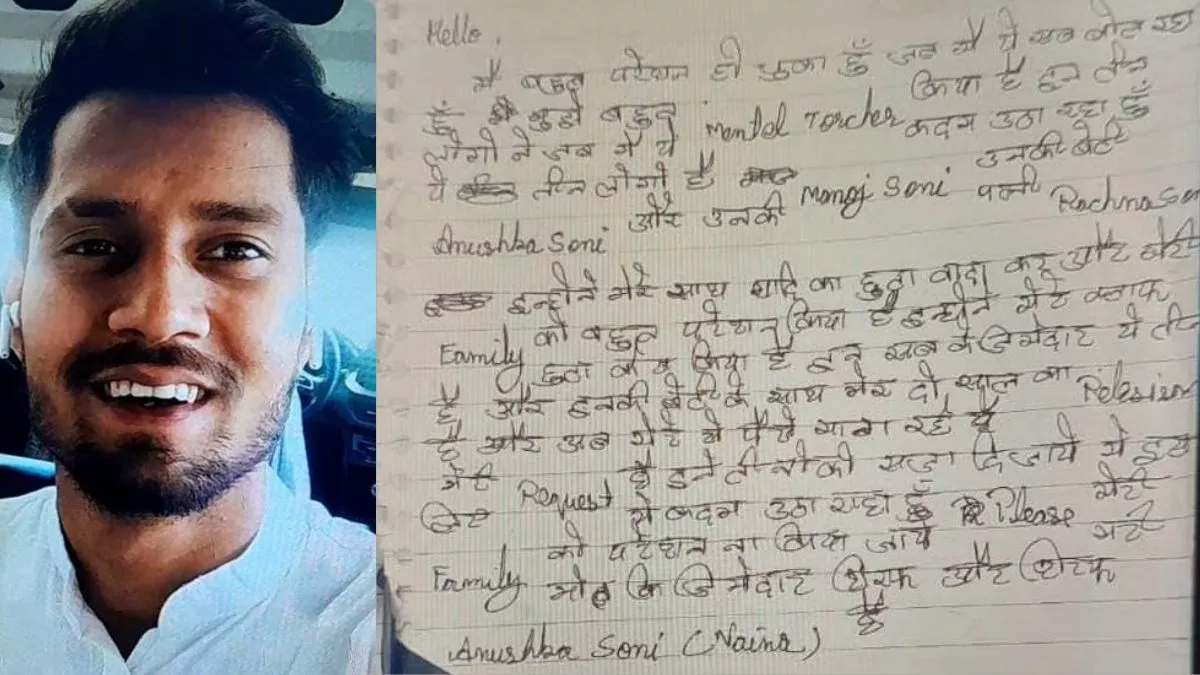 Hello,
मै बहुत परेशान हो चुका हूँ जब मै ये सब बोल रहा
हूँ मुझे बहुत Mental Torcher किया है इन तीन
लोगो ने जब मै ये कदम उठा रहा हूँ
ये तीन लोगो है Manoj Soni उनकी बेटी
Anushka Soni और उनकी पत्नी Rachna Son
इन्होने मेरे साथ शादि का झुठा वादा कर और मेरी
Family को बहुत परेशान किया है इन्होने मेरे खलाफ
झुठा केश किया है इन सब के जिमेदार ये तीन
है और इनकी बेटी के साथ मेरा दो साल का Relesion
है और अब मेरे से पैसे माग रहे है
मेरी Request है इने तीनो को सजा दि जाये मे इस
लिए ये कदम उठा राहा हूँ Please मेरी
Family को परेशान ना किया जाये मेरी
मोत कि जिमेदार सिरफ और सिरफ
Anushka Soni (Naina) है